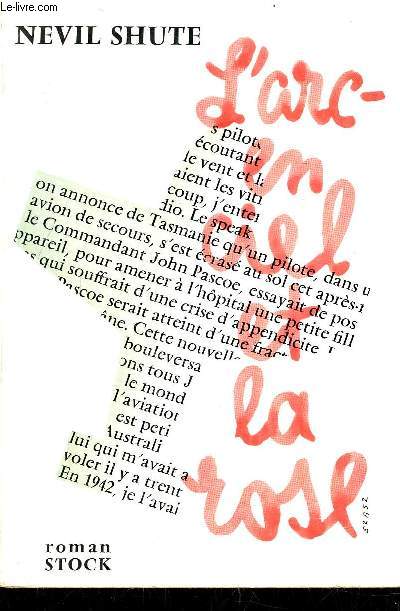 Le-livre.com
NEVIL SHUTE
L'arc-
en
ciel
et
la
rose
s pilot
écoutant
le vent et la
aient les vit
coup, j'enten
dio. Le speak
on annonce de Tasmanie qu'un pilote, dans u
avion de secours, s'est écrasé au sol cet après-m
le Commandant John Pascoe, essayait de pos
ppareil, pour amener à l'hôpital une petite fill
qui souffrait d'une crise d'appendicite.
Pascoe serait atteint d'une fract
âne. Cette nouvell
bouleversa
ons tous J
le mond
l'aviation
est peti
Australi
lui qui m'avait a
voler il y a trent
En 1942, je l'avai
roman
STOCK